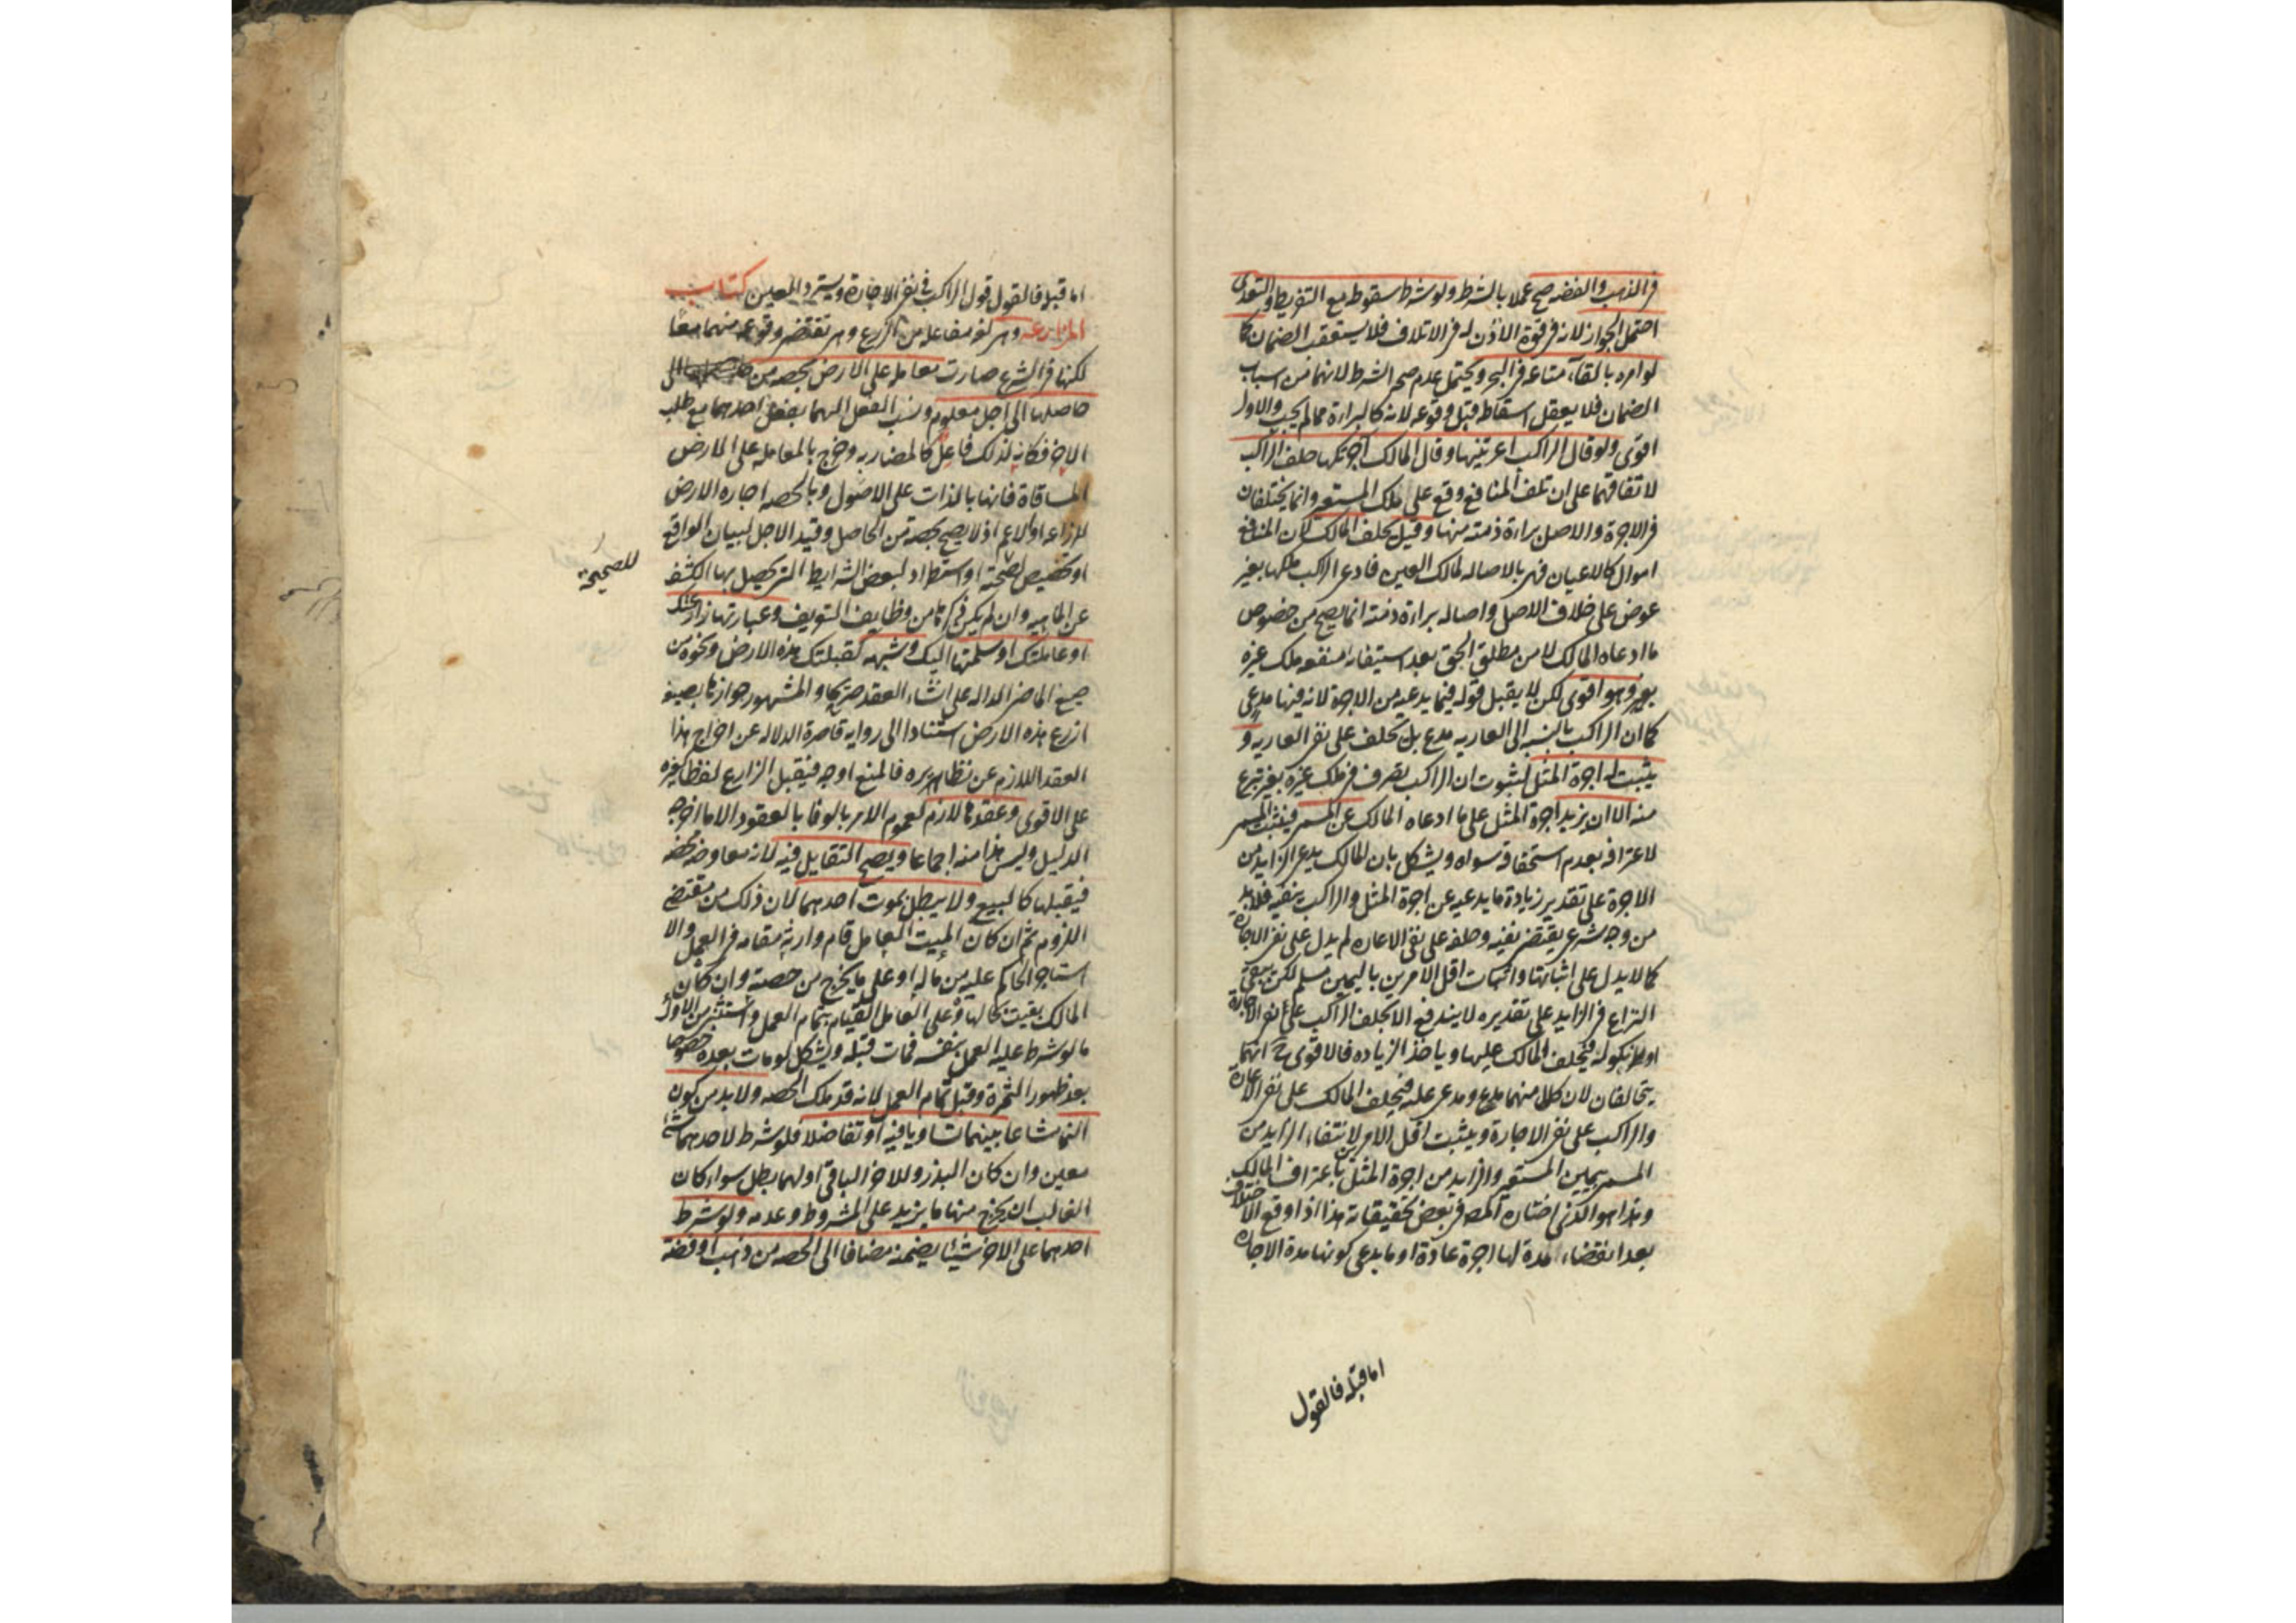 في الذهب والفضة صح عملا بالشرط ولو شرط سقوطه مع التفريط والتعدى
احتمل الجواز لانه في قوة الاذن له في الاتلاف فلا يستعقب الضمان كما
لو امره بالقاء متاعه في البحر ويحتمل عدم صحة الشرط لانهما من اسباب
الضمان فلا يعقل اسقاطه قبل وقوعه لانه كالبراءة مما لم يجب والاول
اقوى ولو قال الراكب اعرتنيها وقال المالك آجرتكها حلف الراكب
لاتفاقهما على ان تلف المنافع وقع على ملك المستعير وانما يختلفان
في الاجرة والاصل براءة ذمته منها وقيل يحلف المالك لان المنافع
اموال كالاعيان فهي بالاصالة لمالك العين فادعا الراكب ملكها بغير
عوض على خلاف الاصل واصاله براءة ذمته انما يصح من خصوص
ما ادعاه المالك لا من مطلق الحق بعد استيفائه منفعة ملك غيره
وهو اقوى لكن لا يقبل قوله فيما يدعيه من الاجرة لانه فيها مدعى
كما ان الراكب بالنسبه الى العاريه مدع بل يحلف على نفى العاريه و
يثبت له اجرة المثل لثبوت ان الراكب تصرف في ملك غيره بغير تبرع
منه الا ان يزيد اجرة المثل على ما ادعاه المالك عن المسمى فيثبت المسمى
لاعترافه بعدم استحقاقه سواه ويشكل بان المالك يدعى الزايد من
الاجرة على تقدير زيادة ما يدعيه عن اجرة المثل والراكب ينفيه فلا بد
من وجه شرعى يقتضى نفيه وحلفه على نفى الاعاره لم يدل على نفى الاجاره
كما لا يدل على اثباتها واثبات اقل الامرين باليمين مسلم لكن يبقى
النزاع في الزايد على تقديره لا يندفع الا بحلف الراكب على نفى الاجارة
او نكوله فيحلف المالك عليها وياخذ الزياده فالاقوى ح انهما
يتحالفان لان كلا منهما مدع ومدعى عليه فيحلف المالك على نفى الاعاره
والراكب على نفى الاجارة ويثبت اقل الامرين لانتفاء الزايد من
المسمى بيمين المستعير والزايد من اجرة المثل باعتراف المالك
وهذا هو الذى اختاره المصه في بعض تحقيقاته هذا اذا وقع الاختلاف
بعد انقضاء مدة لها اجرة عادة او ما يدعى كونها مدة الاجاره
اما قبله فالقول
اما قبله فالقول قول الراكب في نفى الاجارة ويسترد العين كتاب
المزارعه وهى لغه مفاعله من الزرع وهى تقتضى وقوعه منهما معًا
لكنها في الشرع صارت معامله على الارض بحصه من
حاصلها الى اجل معلوم ونسب الفعل اليهما بفعل احدهما مع طلب
الاخر فكانه لذلك فاعل كالمضاربه وخرج بالمعامله على الارض
المساقاة فانها بالذات على الاصول وبالحصه اجاره الارض
للزراعه او الاعم اذ لا يصح بحصة من الحاصل وقيد الاجل لبيان الواقع
او تخصيص للصحيحة او استطراد لبعض الشرايط التى يحصل بها الكشف
للصحيحة
عن الماهيه وان لم يكن ذكرها من وظايف التعريف وعبارتها زارعتك
او عاملتك او سلمتها اليك وشبهه كقبلتك هذه الارض ونحوه من
صيغ الماضى الداله على انشاء العقد صريحا والمشهور جوازها بصيغه
ازرع هذه الارض استنادا الى روايه قاصرة الدلاله عن اخراج هذا
العقد اللازم عن نظائره فالمنع اوجه فيقبل الزارع لفظا كغيره
على الاقوى وعقدها لازم لعموم الامر بالوفا بالعقود الا ما اخرجه
الدليل وليس هذا منه اجماعا ويصح التقايل فيه لانه معاوضه محضه
فيقبلها كالبيع ولا يبطل بموت احدهما لان ذلك من مقتضى
اللزوم ثم ان كان الميت العامل قام وارثه مقامه في العمل والا
استاجر الحاكم عليه من ماله او على ما يخرج من حصته وان كان
المالك بقيت بحالها وعلى العامل القيام بتمام العمل واستثنى من الاول
ما لو شرط عليه العمل بنفسه فمات قبله ويشكل لو مات بعده خصوصا
بعد ظهور الثمرة وقبل تمام العمل لانه قد ملك الحصه ولا بد من كون
النما مشاعا بينهما تساويا فيه او تفاضلا فلو شرط لاحدهما شئ
معين وان كان البذر وللاخر الباقى او لهما بطل سواء كان
الغالب ان يخرج منها ما يزيد على المشروط وعدمه ولو شرط
احدهما على الاخر شيئا يضمنه مضافا الى الحصه من ذهب او فضة